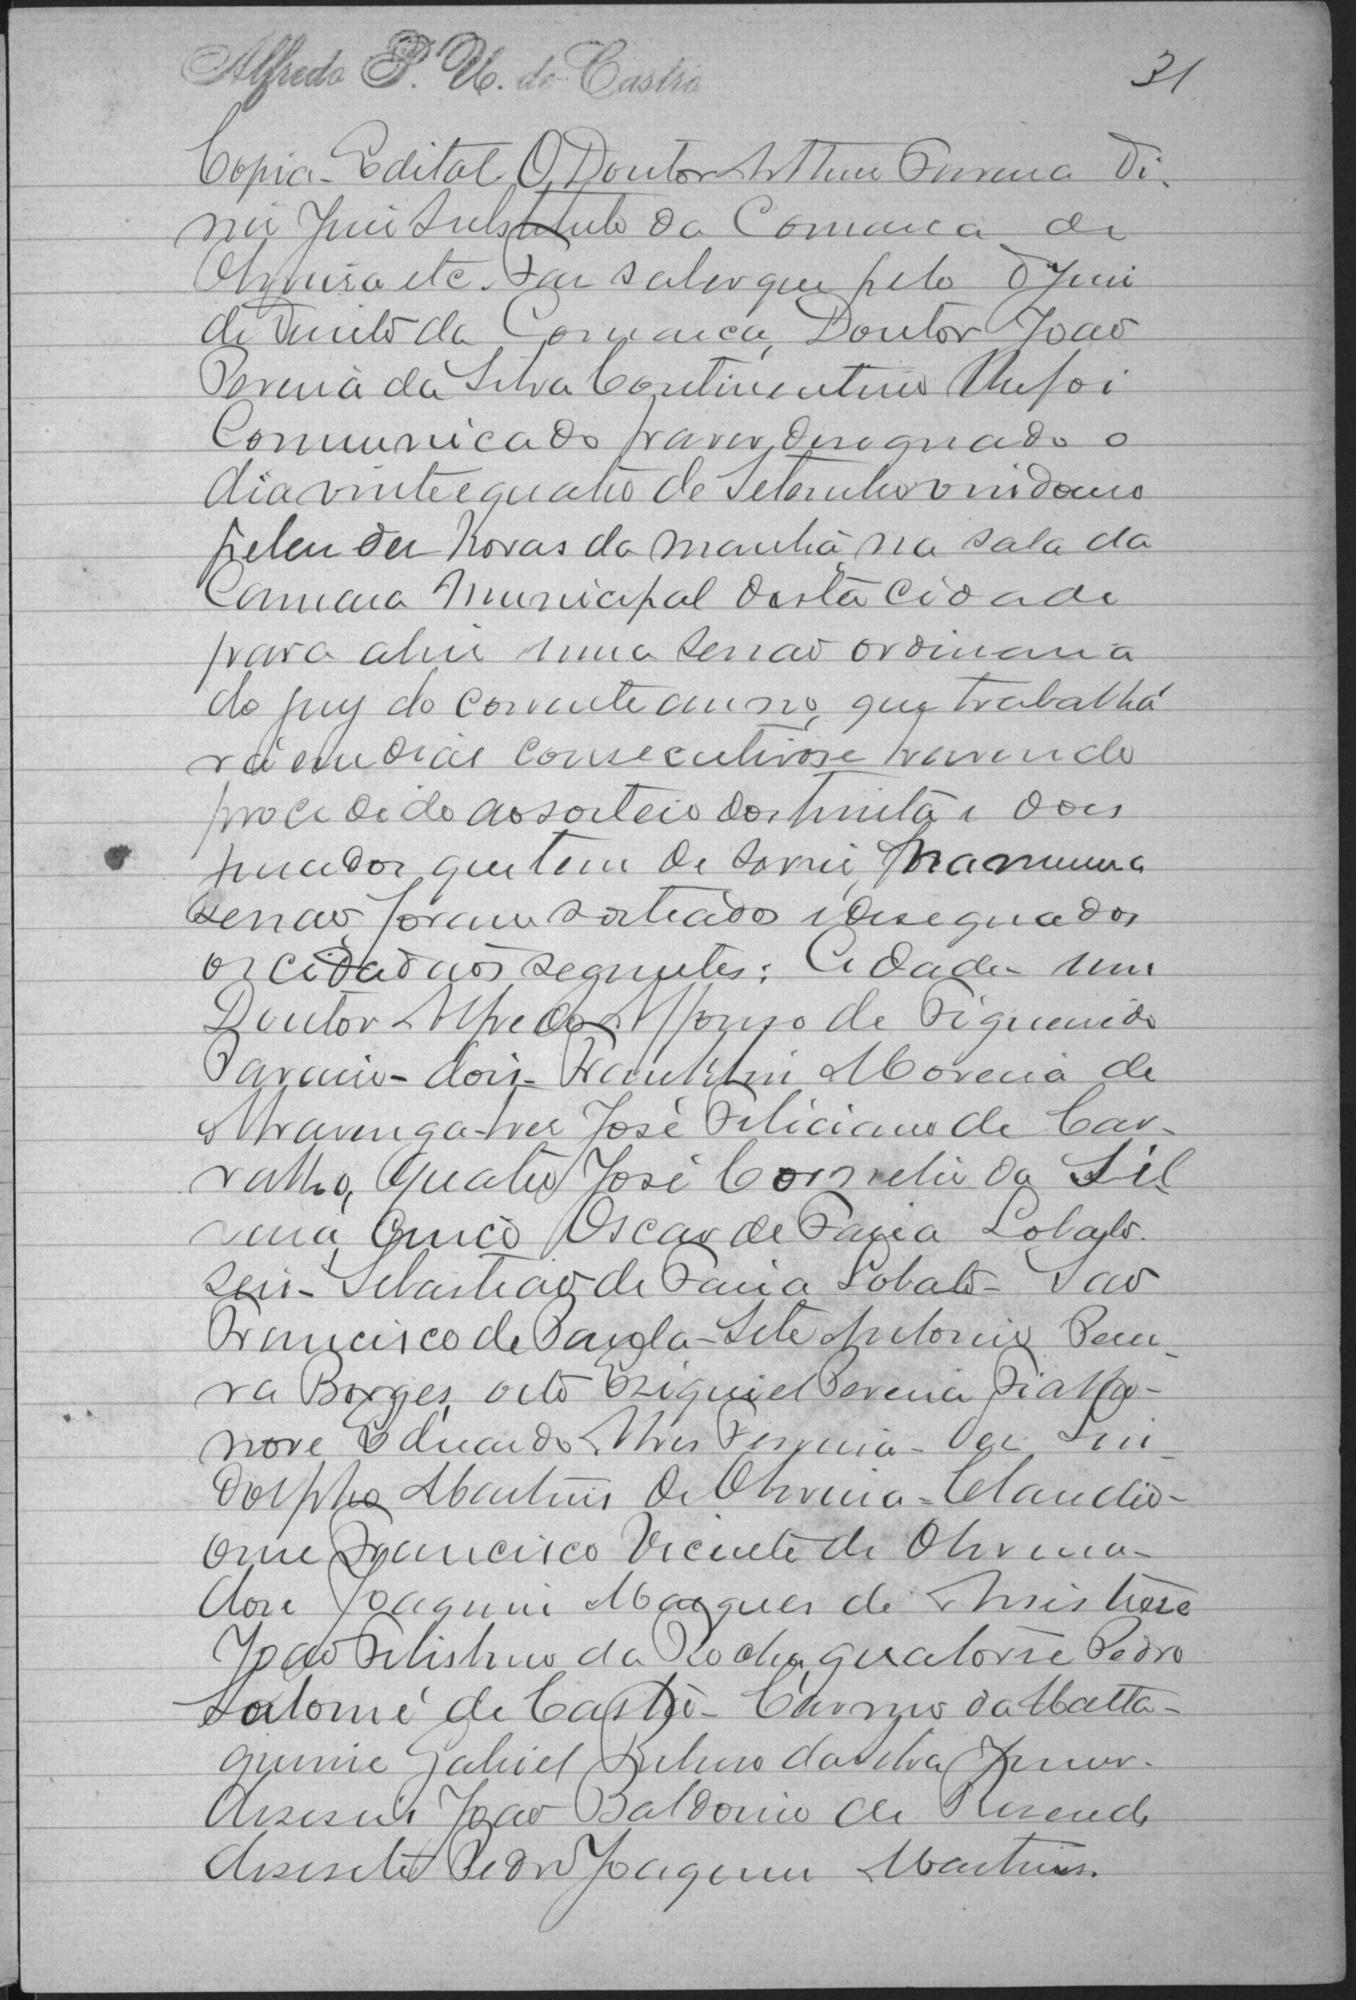 Alfredo P. U. de Castro
31
Copia. Edital. O Doutor Arthur Ferrena Di-
niz Juiz Substituto da Comarca de
Oliveira etc. Faz saber que pelo D Juiz
de Direito da Comarca, Doutor Joao
Pereira da Silva Continentino lhe foi
Communicado haver designado o
dia vinte e quatro de Setembro vindouro
pelas dez horas da manhã, na sala da
Camara Municipal desta Cidade
para abrir uma sessao ordinaria
do jury do corrente anno, que trabalhá
rá em dias consecutivos e havendo
procedido ao sorteio dos trinta e dois
jurados que tem de servir, na mesma
sessao, foram sorteados e deseguados
os cidadaos seguntes: Cidade - um
Doutor Alfredo Affonso de Figueredo
Paraiso - dois - Franklin Moreira de
Alvarenga - tres José Feliciano de Car-
valho, quatro José Cornelio da Sil
veira, cinco Oscar de Faria Lobato.
Seis - Sebastiao de Faria Lobato - Sao
Francisco de Paula - Sete Antonio Perei-
ra Borges, oito Esiquiel Pereira Fialho -
nove Eduardo Alves Ferreira - Dez Lin-
dolpho Martins de Oliveira - Claudio -
onze Francisco Vicente de Oliveira -
dose Joaquim Marques de Assis trese
Joao Felisbino da Rocha, quatorse Pedro
Salomé de Castro - Carmo da Matta -
quinze Gabriel Ribeiro da Silva Junior -
deseseis Joao Baldoino de Resende
desesete Pedro Joaquim Martins.